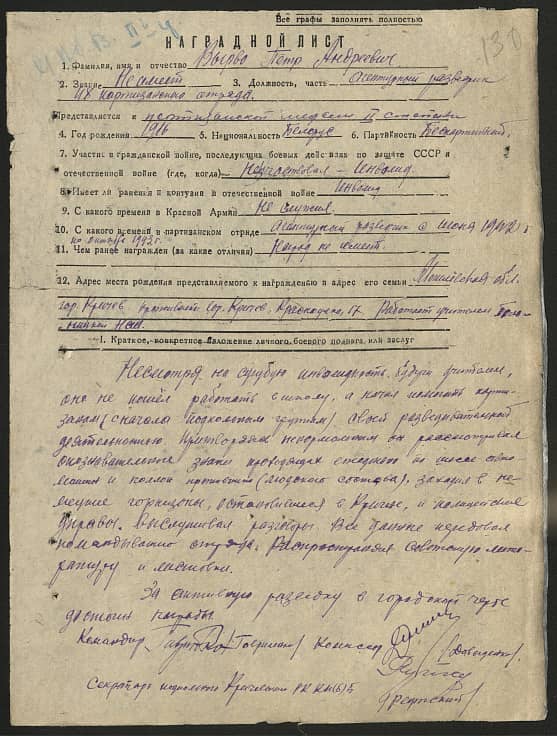 Все графы заполнять полностью
130
НАГРАДНОЙ ЛИСТ
1. Фамилия, имя и отчество Вырво Петр Андреевич
2. Звание Не имеет 3. Должность, часть Агентурный разведчик
партизанского отряда.
Представляется к партизанской медали II степени
4. Год рождения 1916 5. Национальность Белорус 6. Партийность Беспартийный.
7. Участие в гражданской войне, последующих боевых действиях по защите СССР и
отечественной войне (где, когда) Не участвовал – Инвалид.
8. Имеет ли ранения и контузии в отечественной войне Инвалид
9. С какого времени в Красной Армии Не служил.
10. С какого времени в партизанском отряде Агентурный разведчик с июня 1942 г.
по октябрь 1943 г.
11. Чем ранее награжден (за какие отличия) Наград не имеет.
12. Адрес места рождения представляемого к награждению и адрес его семьи Могилевская обл.
гор. Кричев проживает гор. Кричев, 17. Работает учителем
НСШ.
1. Краткое, конкретное изложение личного, боевого подвига, или заслуг
Несмотря на инвалидность, будучи учителем,
он не пошел работать в школу, а начал помогать парти-
занам (сначала подпольным группам) своей разведывательной
деятельностью. Притворяясь ненормальным он рассматривал
опознавательные знаки проходящих ежедневно по шоссе авто-
машин и колонн противника (людского состава), заходил в не-
мецкие, в Кричеве, и полицейские
управы. Выслушивал разговоры. Все данные передавал
командованию отряда. Распространял советскую лите-
ратуру и листовки.
За активную разведку в городской черте
достоин награды
Командир Комиссар
Секретарь Кричевского РК КП(б)Б